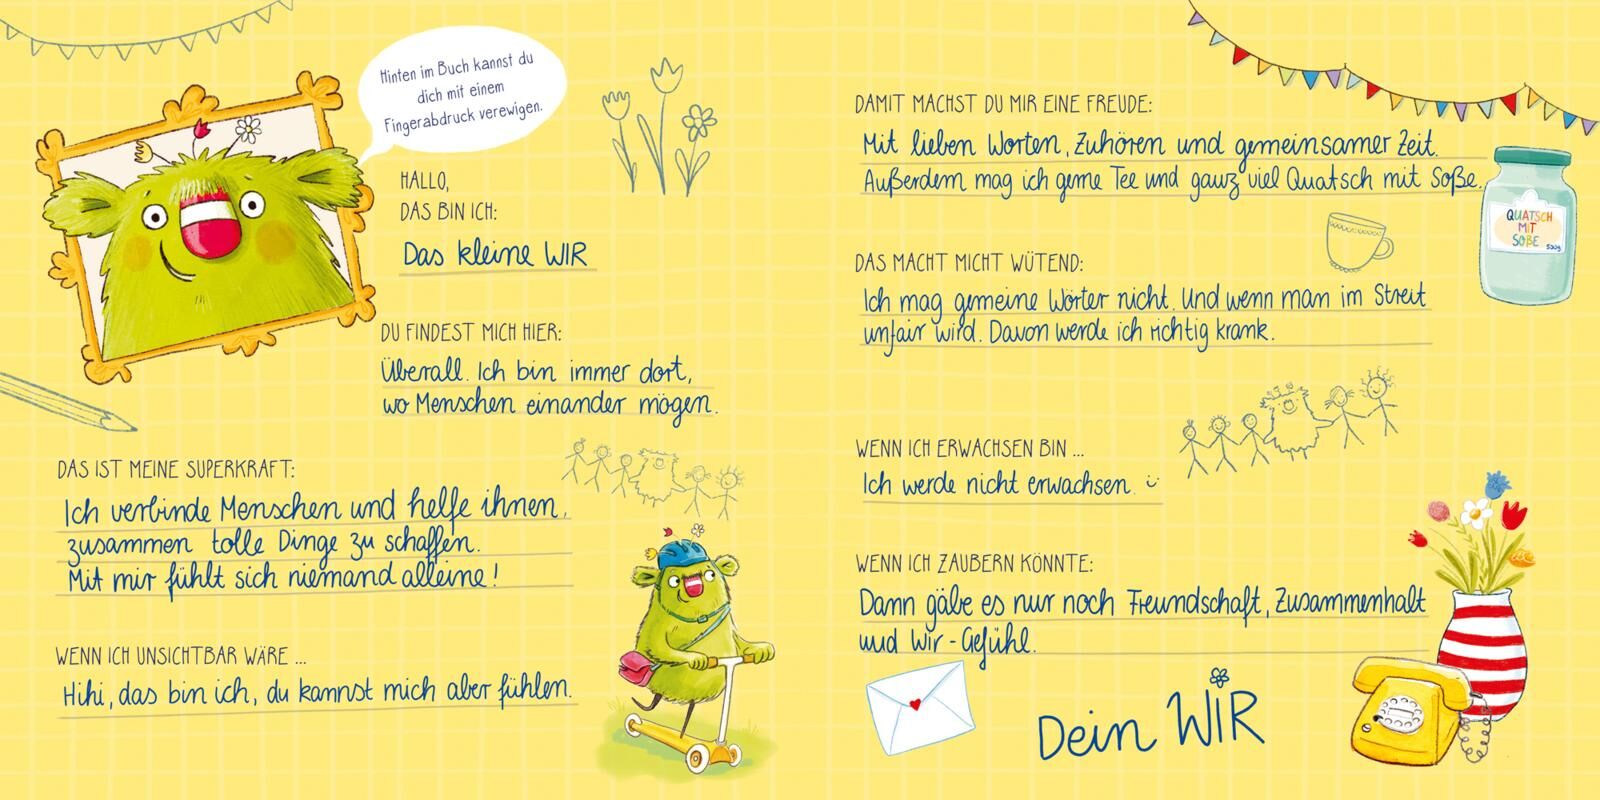 Hinten im Buch kannst du
dich mit einem
Fingerabdruck verewigen.
HALLO,
DAS BIN ICH:
Das kleine WIR
DU FINDEST MICH HIER:
Überall. Ich bin immer dort,
wo Menschen einander mögen.
DAS IST MEINE SUPERKRAFT:
Ich verbinde Menschen und helfe ihnen,
zusammen tolle Dinge zu schaffen.
Mit mir fühlt sich niemand alleine!
WENN ICH UNSICHTBAR WÄRE ...
Hihi, das bin ich, du kannst mich aber fühlen.
DAMIT MACHST DU MIR EINE FREUDE:
Mit lieben Worten, Zuhören und gemeinsamer Zeit.
Außerdem mag ich gerne Tee und ganz viel Quatsch mit Soße.
QUATSCH
MIT
SOßE
500g
DAS MACHT MICHT WÜTEND:
Ich mag gemeine Wörter nicht. Und wenn man im Streit
unfair wird. Davon werde ich richtig krank.
WENN ICH ERWACHSEN BIN ...
Ich werde nicht erwachsen. :)
WENN ICH ZAUBERN KÖNNTE:
Dann gäbe es nur noch Freundschaft, Zusammenhalt
und Wir-Gefühl.
Dein WIR